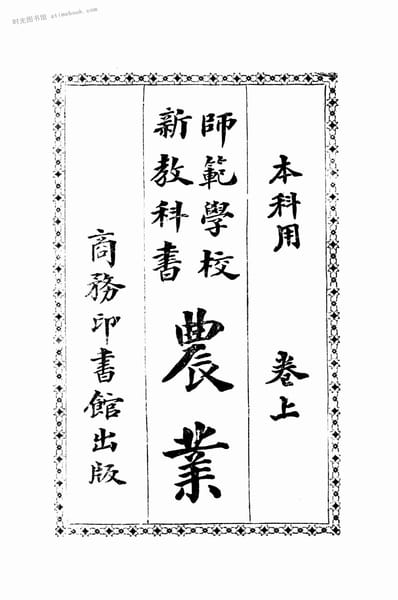 时光图书馆 atimebook.com
本科用 卷上
師範學校
新教科書
農業
商務印書館出版